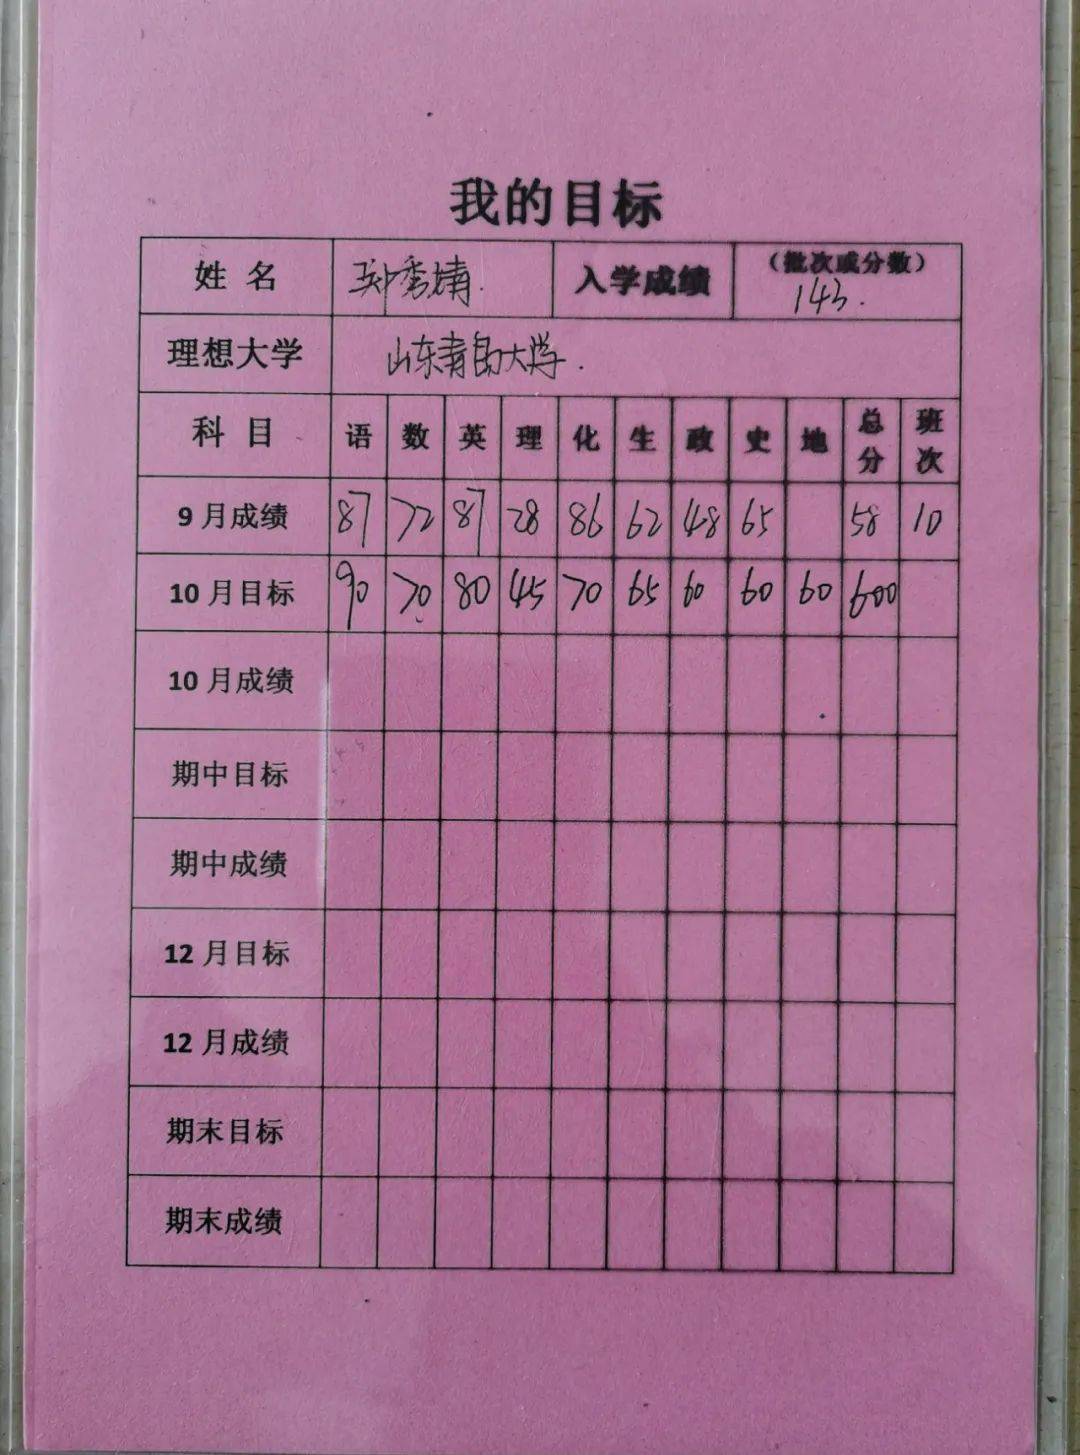 我的目标
姓 名 郑秀婧. 入学成绩 （批次或分数） 143.
理想大学 山东青岛大学.
科 目 语 数 英 理 化 生 政 史 地 总分 班次
9月成绩 87 72 87 28 86 62 48 65 58 10
10月目标 90 70 80 45 70 65 60 60 60 600
10月成绩
期中目标
期中成绩
12月目标
12月成绩
期末目标
期末成绩